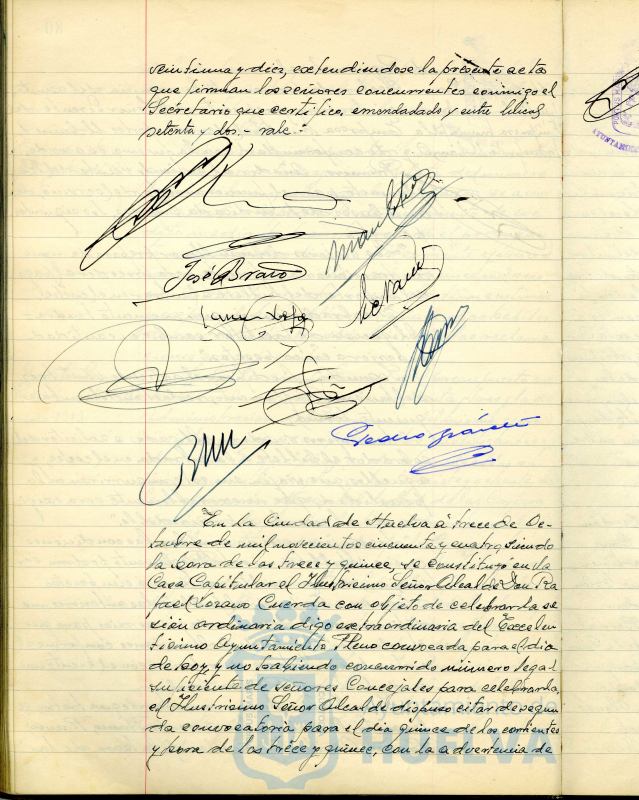 veintiuna y diez, extendiendose la presente acta
que firman los señores concurrentes conmigo el
Secretario que certifico, enmendado y entre lineas
setenta y dos.- vale.-
José Bravo
Pedro
En la Ciudad de Huelva á trece de Oc-
tubre de mil novecientos cincuenta y cuatro, siendo
la hora de las trece y quince, se constituyó en la
Casa Capitular el Ilustrisimo Señor Alcalde Don Ra
fael Lozano Cuerda con objeto de celebrar la se
sion ordinaria digo extraordinaria del Excelen
tisimo Ayuntamiento Pleno convocada para el dia
de hoy, y no habiendo concurrido número legal
suficiente de señores Concejales para celebrarla,
el Ilustrisimo Señor Alcalde dispuso citar de segun
da convocatoria para el dia quince de los corrientes
y hora de las trece y quince, con la advertencia de
HUELVA